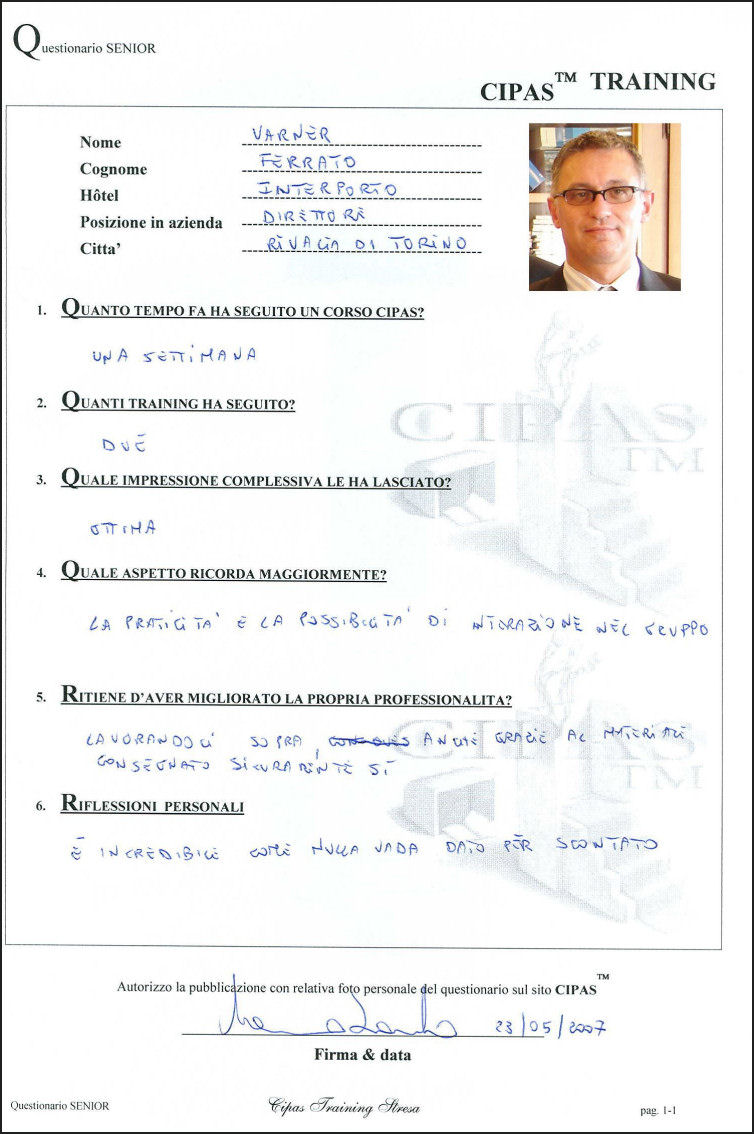 Questionario SENIOR
CIPAS™ TRAINING
Nome VARNER
Cognome FERRATO
Hôtel INTERPORTO
Posizione in azienda DIRETTORE
Citta' RIVALTA DI TORINO
1. QUANTO TEMPO FA HA SEGUITO UN CORSO CIPAS?
UNA SETTIMANA
2. QUANTI TRAINING HA SEGUITO?
DUE
3. QUALE IMPRESSIONE COMPLESSIVA LE HA LASCIATO?
OTTIMA
4. QUALE ASPETTO RICORDA MAGGIORMENTE?
LA PRATICITA' E LA POSSIBILITA' DI INTERAZIONE NEL GRUPPO
5. RITIENE D'AVER MIGLIORATO LA PROPRIA PROFESSIONALITA?
LAVORANDOCI SOPRA, ANCHE GRAZIE AL MATERIALE
CONSEGNATO SICURAMENTE SÌ
6. RIFLESSIONI PERSONALI
È INCREDIBILE COME NULLA VADA DATO PER SCONTATO
CIPAS
TM
CIPAS
TM
Autorizzo la pubblicazione con relativa foto personale del questionario sul sito CIPAS™
23/05/2007
Firma & data
Questionario SENIOR
Cipas Training Stresa
pag. 1-1